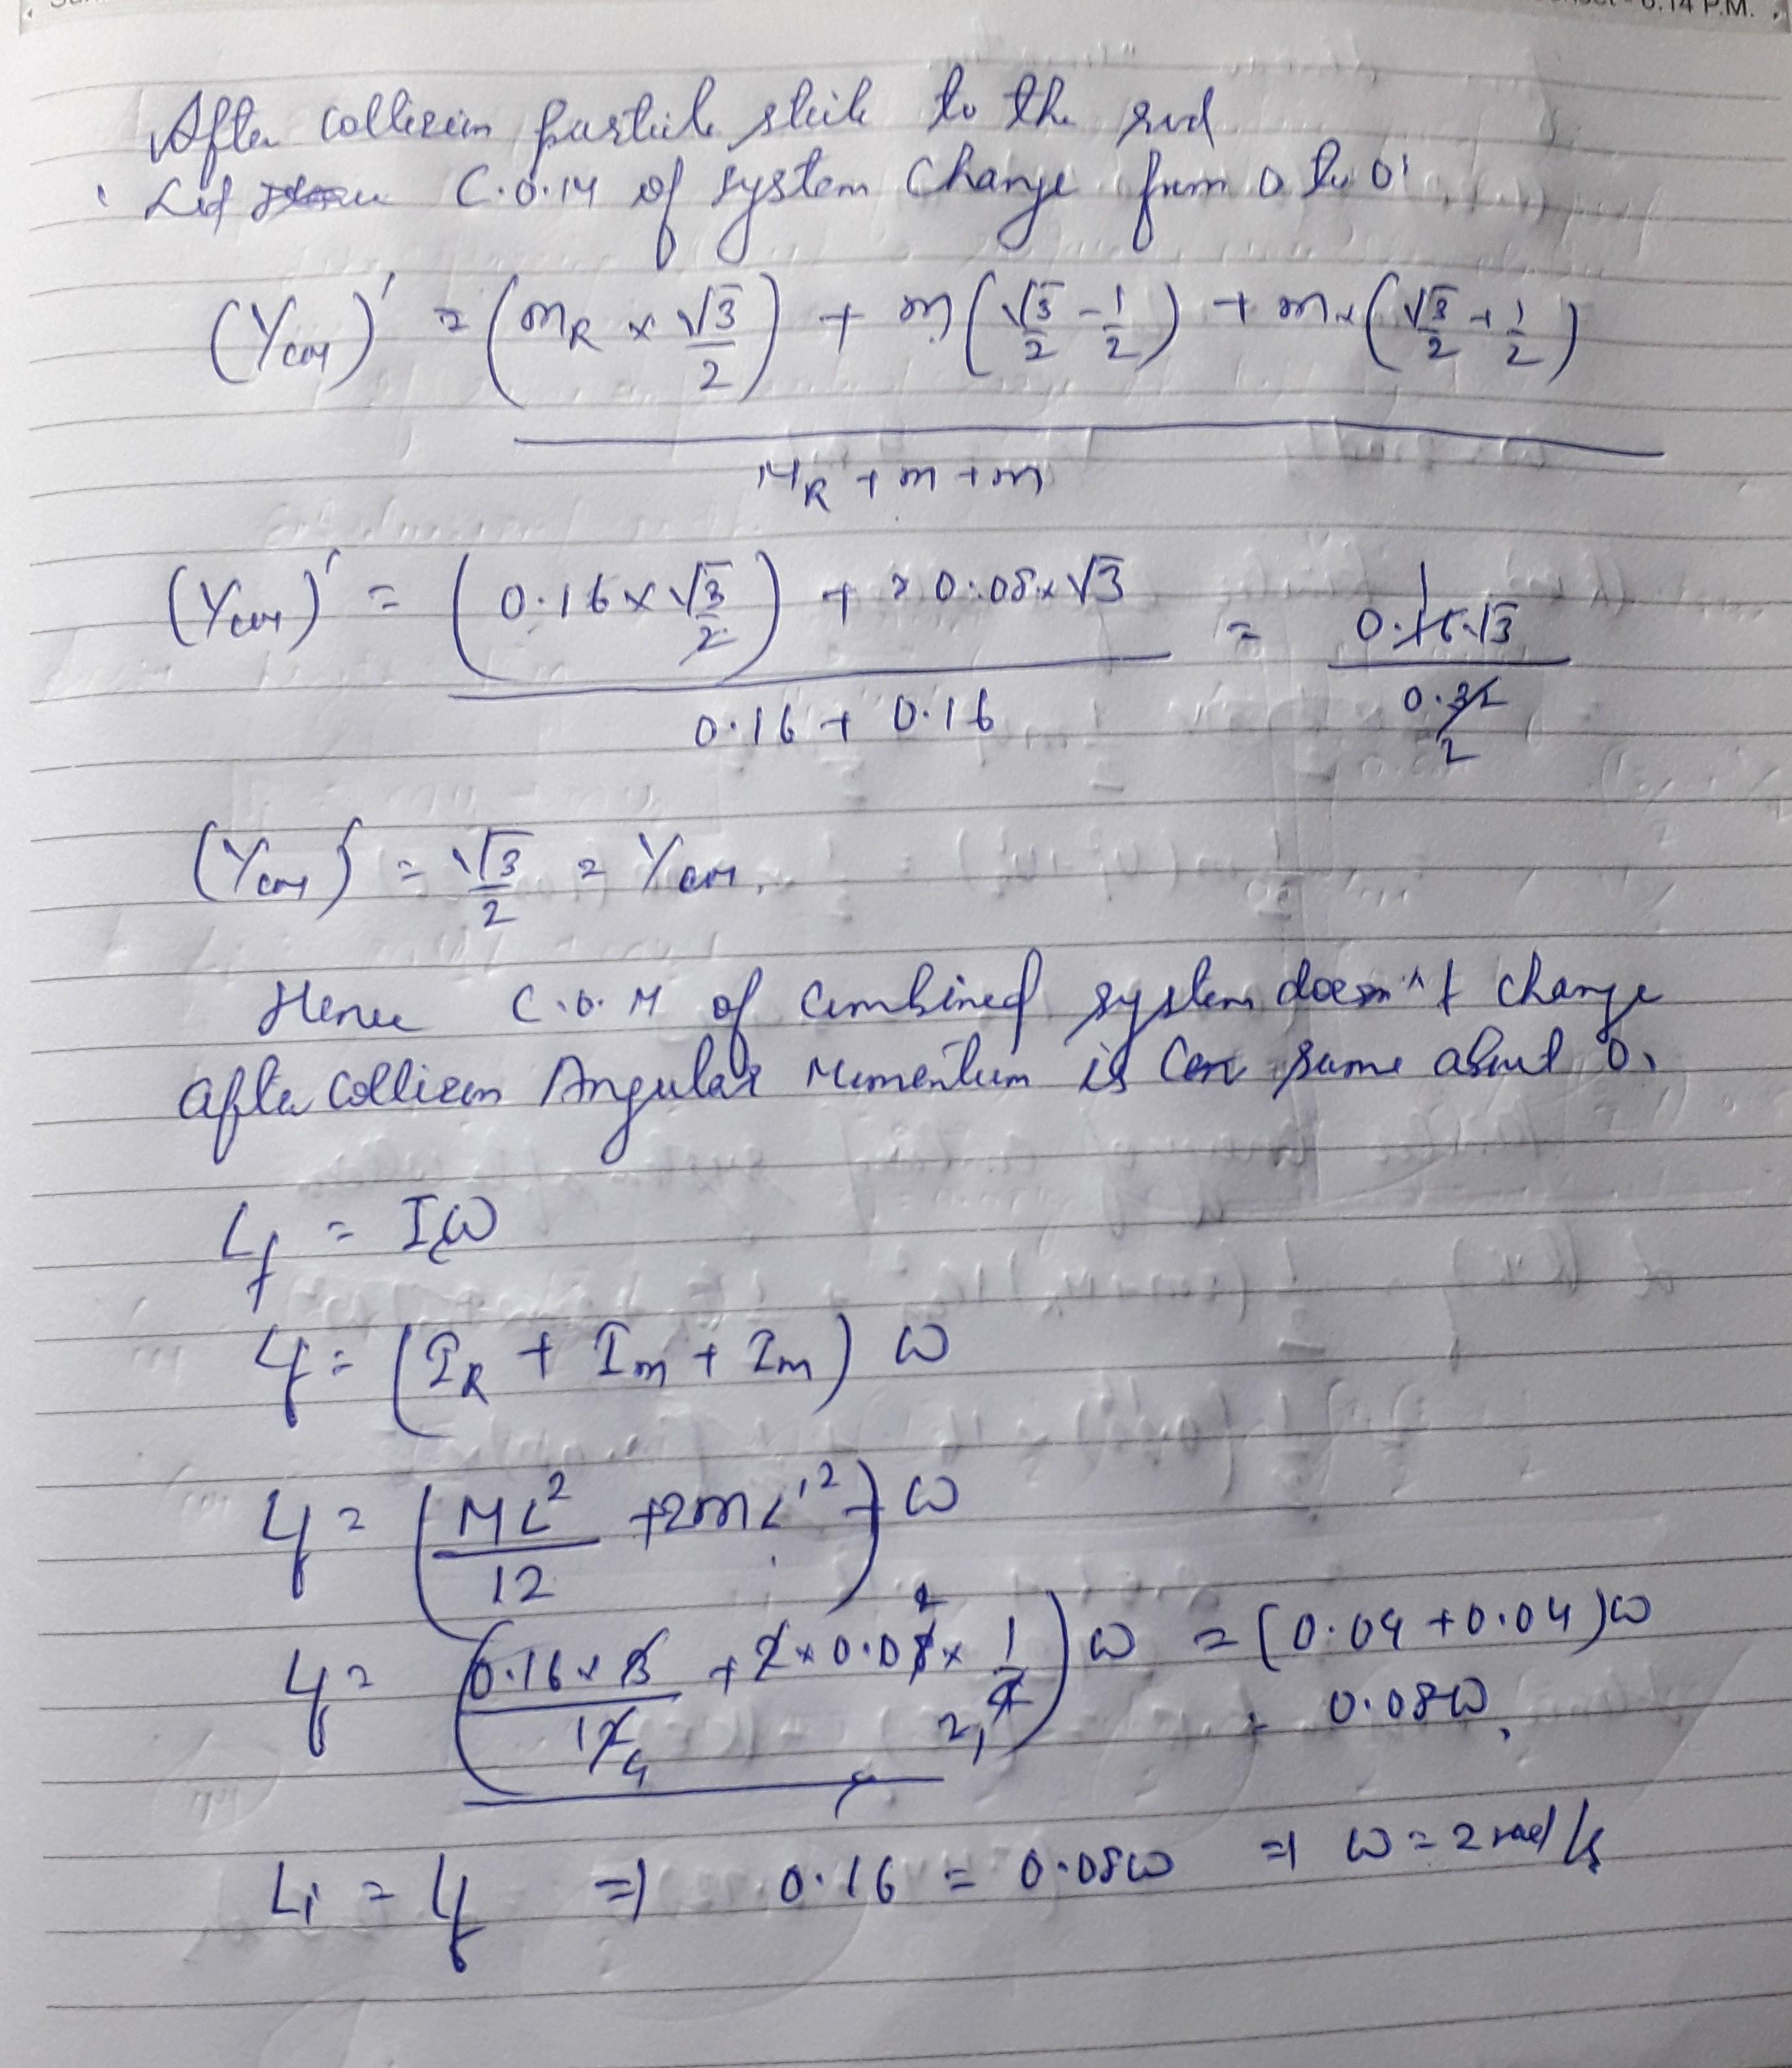 6.14 P.M.
After collision particle stick to the rod
Let C.O.M of system change from O to O'
(Ycom)' = (mR × √3/2) + m(√3/2 - 1/2) + m×(√3/2 + 1/2)
MR + m + m
(Ycom)' = (0.16 × √3/2) + 0.08×√3 = 0.16√3
0.16 + 0.16 0.32
1 2
(Ycom)' = √3/2 = Ycom.
Hence C.O.M of Combined system doesn't change
after Collision Angular Momentum is same about O.
Lf = Iω
Lf = (IR + Im + Im) ω
Lf = (ML²/12 + 2mL'²) ω
Lf = (0.16 × 3/12 + 2×0.08× 1/4) ω = (0.04 + 0.04)ω
= 0.08ω
Li = Lf ⇒ 0.16 = 0.08ω ⇒ ω = 2 rad/s